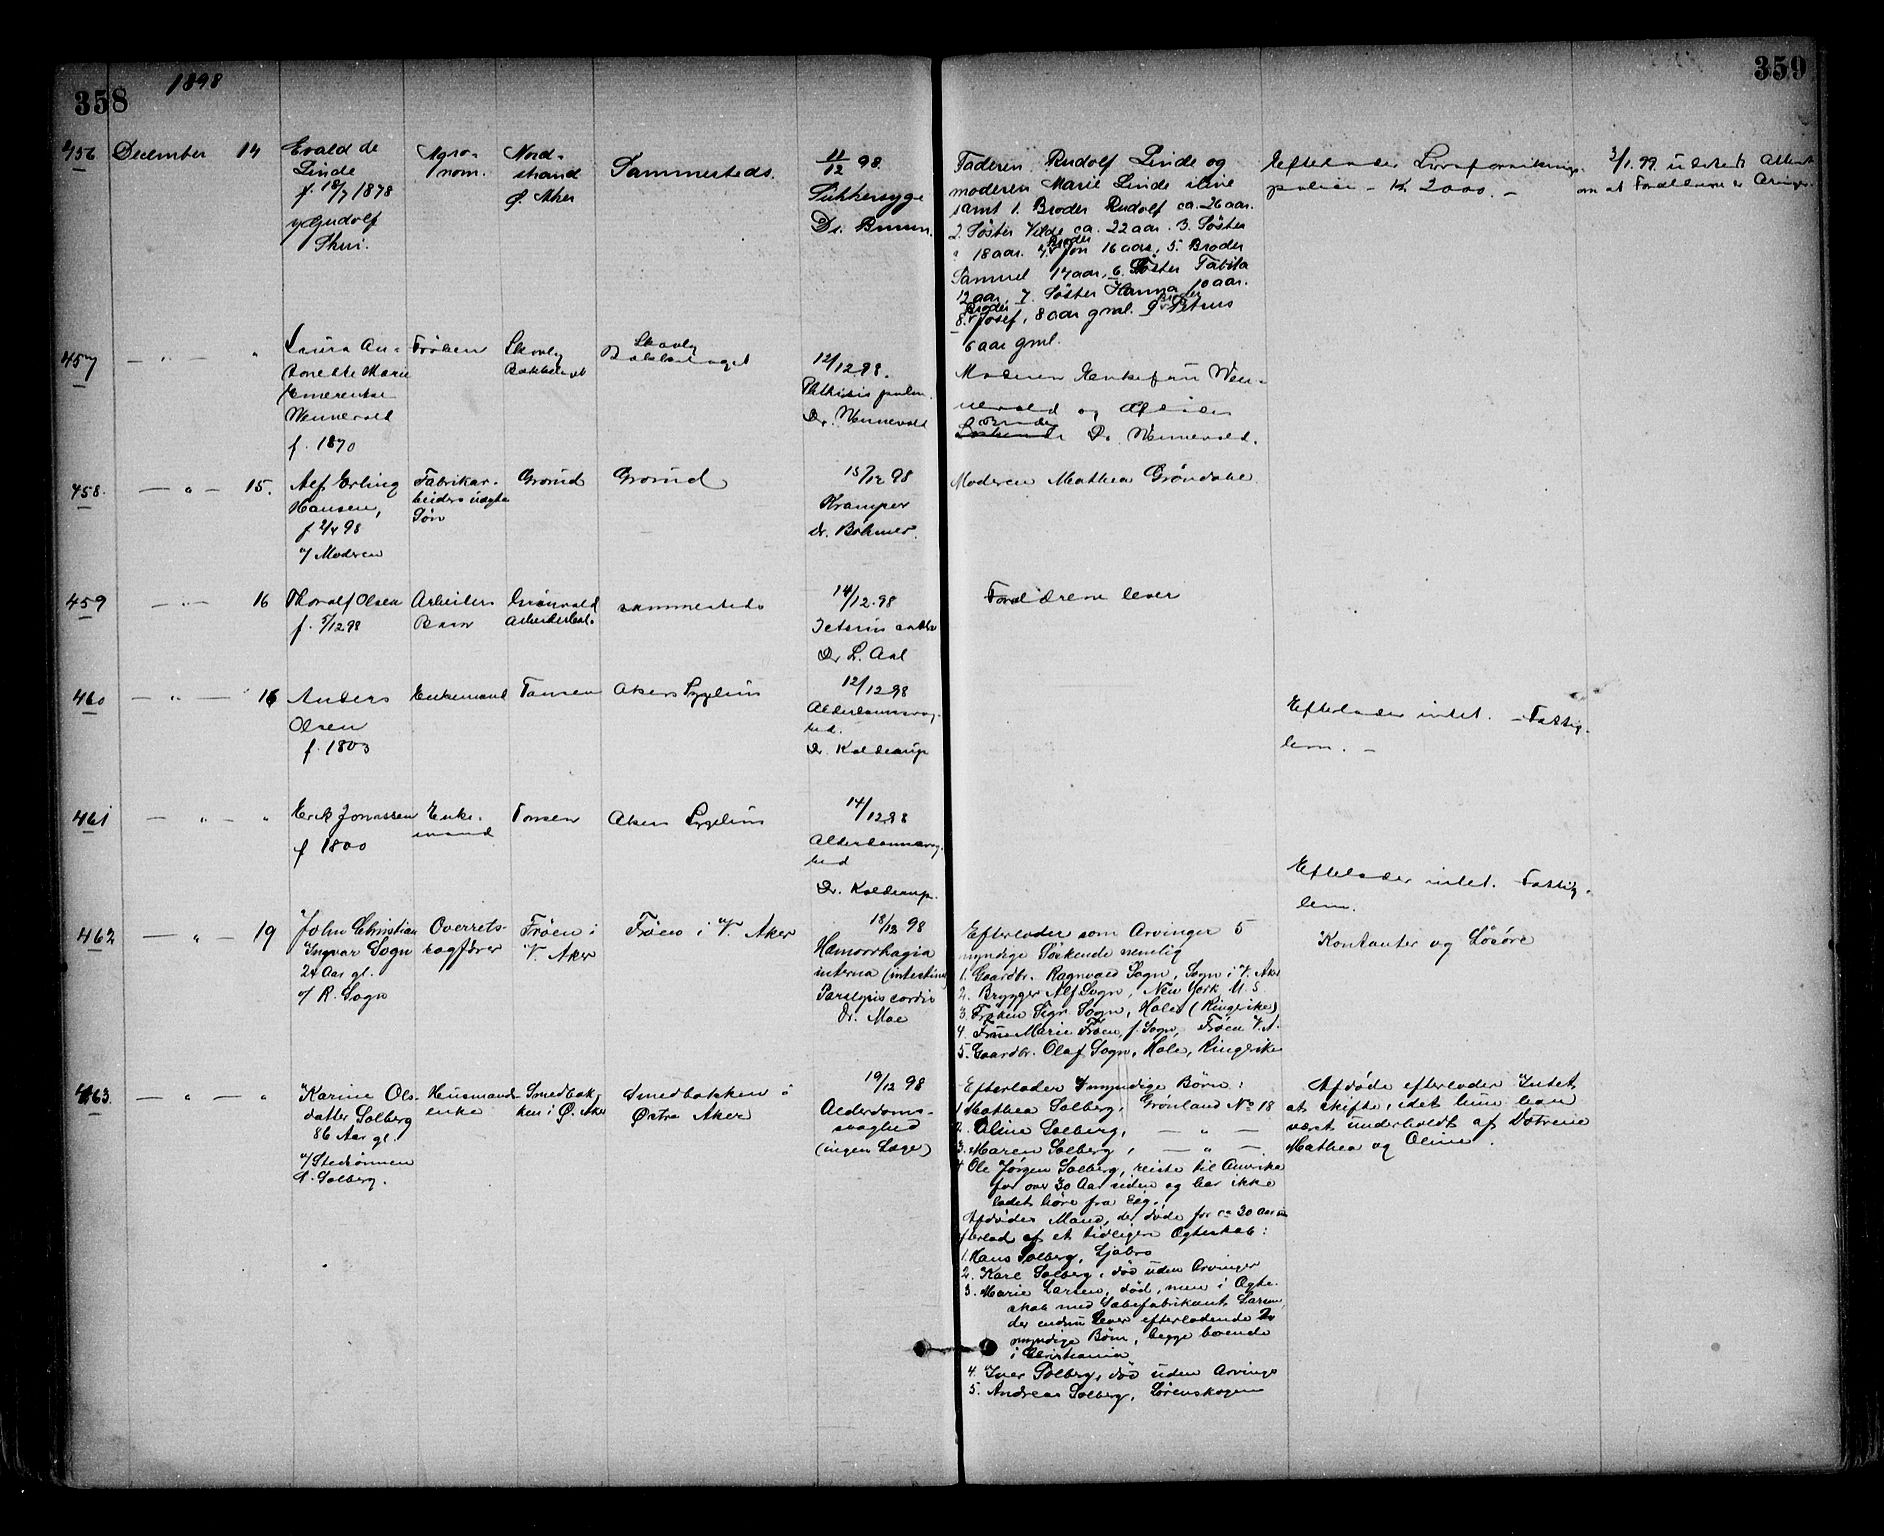 358
1898
359
456 December 14
Evald de
Linde
f. 18/7 1878
Agro-
nom.
Nord-
strand
Ø. Aker
Sammesteds.
11/12 98.
Sukkersyge
Dr. Bruun.
Faderen Rudolf Linde og
moderen Marie Linde ilive
samt 1. Broder Rudolf ca. 26 aar.
2. Søster Vilde ca. 22 aar. 3. Søster
18 aar. 4. Broder Jon 16 aar, 5. Broder
Samuel 14 aar, 6. Søster Tabita
12 aar, 7. Søster Hanna 10 aar.
8. Broder Josef, 8 aar gml. 9. Broder Petrus
6 aar gml.
Efterlader Livsforsikrings-
police - Kr 2000. -
3/1. 99 udstedt Attest
om at Forældrene er Arvinger
457 — " — "
Laura An-
tonette Marie
Emerentse
Wennevold
f. 1870
Frøken
Skovly
Bækkelaget
Skovly
Bækkelaget
12/12 98.
Phthisis pulm.
Dr. Wennevold
Moderen Enkefru Wen-
nevold og
Broder
Dr. Wennevold.
458. — " — 15.
Alf Erling
Hansen,
f 2/4 98
v/ Moderen
Fabrikar-
beiders uægte
Søn
Grorud
Grorud
15/12 98
Kramper
Dr. Bøhmer.
Moderen Mathea Grøndahl
459 — " — 16
Thoralf Olsen
f. 5/12 98
Arbeiders
Barn
Grønvold
Arbeiderbol.
sammesteds
14/12 98
Dr L. Aal
Forældrene lever
460 — " — 16
Anders
Olsen
f. 1803
Enkemand
Tonsen
Akers Sygehus
12/12 98
Alderdomssvag-
hed.
Dr. Kolderup
Efterlader intet. - Fattig-
lem. -
461 — " — "
Erik Jonassen
f 1800
Enke-
mand
Tonsen
Akers Sygehus
14/12 98
Alderdomssvag-
hed
Dr. Kolderup.
Efterlader intet. Fattig-
lem.
462 — " — 19
John Christian
Ingvar Sogn
24 Aar gl.
v/ R. Sogn
Overrets-
sagfører
Frøen i
V. Aker
Frøen i V. Aker
18/12 98
Hæmorrhagia
interna (intestin)
Paralysis cordis
Dr. Moe
Efterlader som Arvinger 5
myndige Søskende nemlig
1. Gaardbr. Ragnvald Sogn, Sogn i V. Aker
2. Brygger Alf Sogn, New York U. S.
3. Frøken Sigr. Sogn, Hole (Ringerike)
4. Frue Marie Frøen, f. Sogn, Frøen V. A.
5. Gaardbr. Olaf Sogn, Hole, Ringerike
Kontanter og Løsøre
463. — " — "
Karine Ols-
datter Solberg
86 Aar gl.
v/ Stedsønnen
A. Solberg.
Husmands-
enke
Smedbak-
ken i Ø. Aker
Smedbakken i
Østre Aker
19/12 98
Alderdoms-
svaghed
(ingen Læge)
Efterlader 4 myndige Børn:
1 Mathea Solberg, Grønland No 18
2. Oline Solberg, — " —
3. Maren Solberg, — " —
4 Ole Jørgen Solberg, reiste til Amerika
for over 30 Aar siden og har ikke
ladet høre fra sig.
Afdødes Mand, der døde for ca 30 Aar siden
efterlod af et tidligere Ægteskab:
1. Hans Solberg, Ljabro
2. Karl Solberg, død uden Arvinger
3. Marie Larsen, død, men i Ægte-
skab med Sæbefabrikant Larsen,
der endnu lever efterladende 2
myndige Børn, begge boende
i Christiania
4. Iver Solberg, død uden Arvinge
5. Andreas Solberg, Lørenskogen
Afdøde efterlader Intet
at skifte, idet hun har
været underholdt af Døtrene
Mathea og Oline.